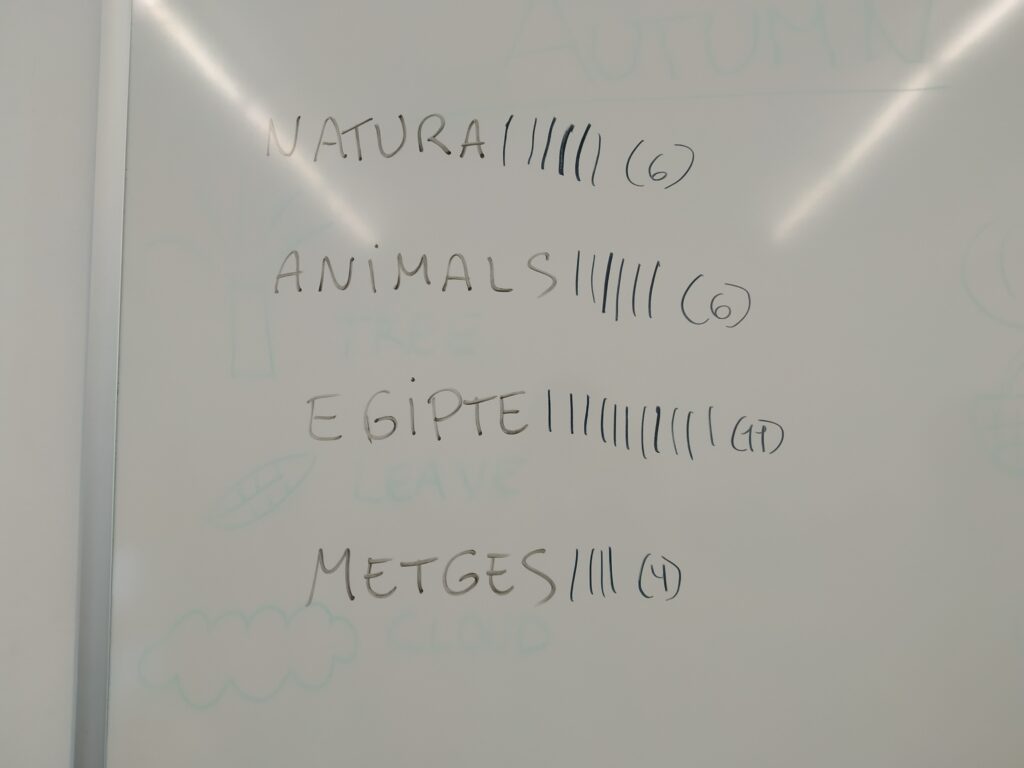 AUTUMN
NATURA |||||| (6)
ANIMALS |||||| (6)
TREE
EGIPTE ||||||||||| (11)
LEAVE
METGES |||| (4)
CLOUD